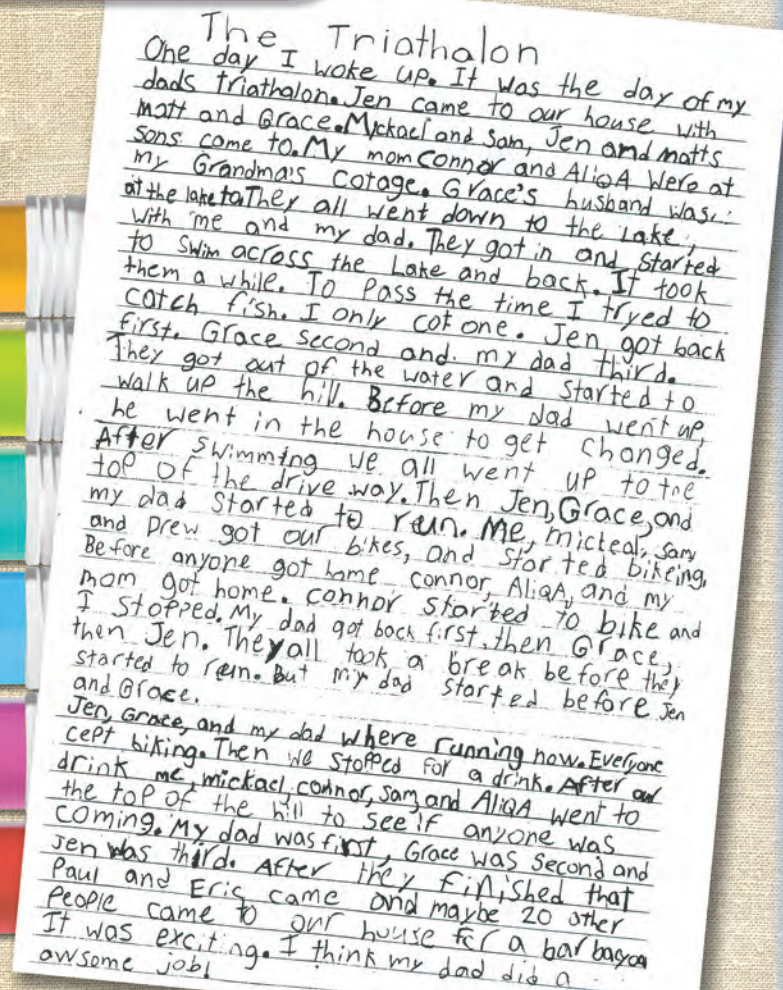 The Triathalon
One day I woke up. It was the day of my
dads triathalon. Jen came to our house with
matt and Grace. Mickael and Sam, Jen and matts
sons come to. My mom Connor and AliQA were at
my Grandma's cotage. Grace's husband was
at the lake to. They all went down to the Lake,
with me and my dad. They got in and started
to swim across the Lake and back. It took
them a while. To pass the time I tryed to
catch fish. I only cot one. Jen got back
first. Grace second and my dad third.
They got out of the water and started to
walk up the hill. Before my dad went up,
he went in the house to get changed.
After swimming we all went up to the
top of the drive way. Then Jen, Grace, and
my dad started to run. Me, micteal, sam,
and Drew got our bikes, and started bikeing,
Before anyone got home connor, AliQA, and my
mom got home. connor started to bike and
I stopped. My dad got back first, then Grace,
then Jen. They all took a break before they
started to run. But my dad started before Jen
and Grace.
Jen, Grace, and my dad where running now. Everyone
cept biking. Then we stopped for a drink. After our
drink me, mickael, connor, sam, and AliQA went to
the top of the hill to see if anyone was
coming. My dad was first, Grace was second and
Jen was third. After they finished that
Paul and Eric came and maybe 20 other
people came to our house for a bar
It was exciting. I think my dad did a
awsome job!